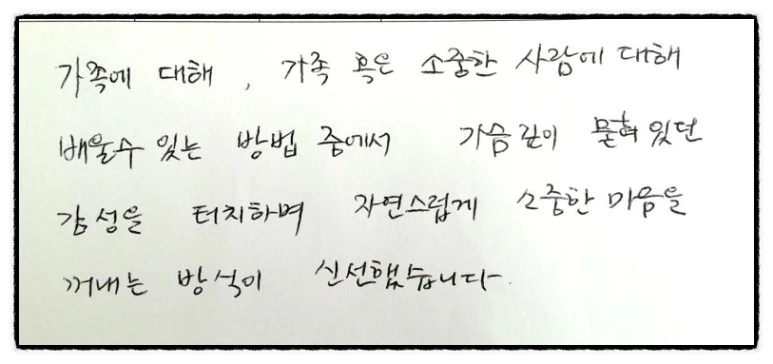 가족에 대해, 가족 혹은 소중한 사람에 대해
배울수 있는 방법 중에서 가슴 깊이 묻혀 있던
감성을 터치하며 자연스럽게 소중한 마음을
꺼내는 방식이 신선했습니다.